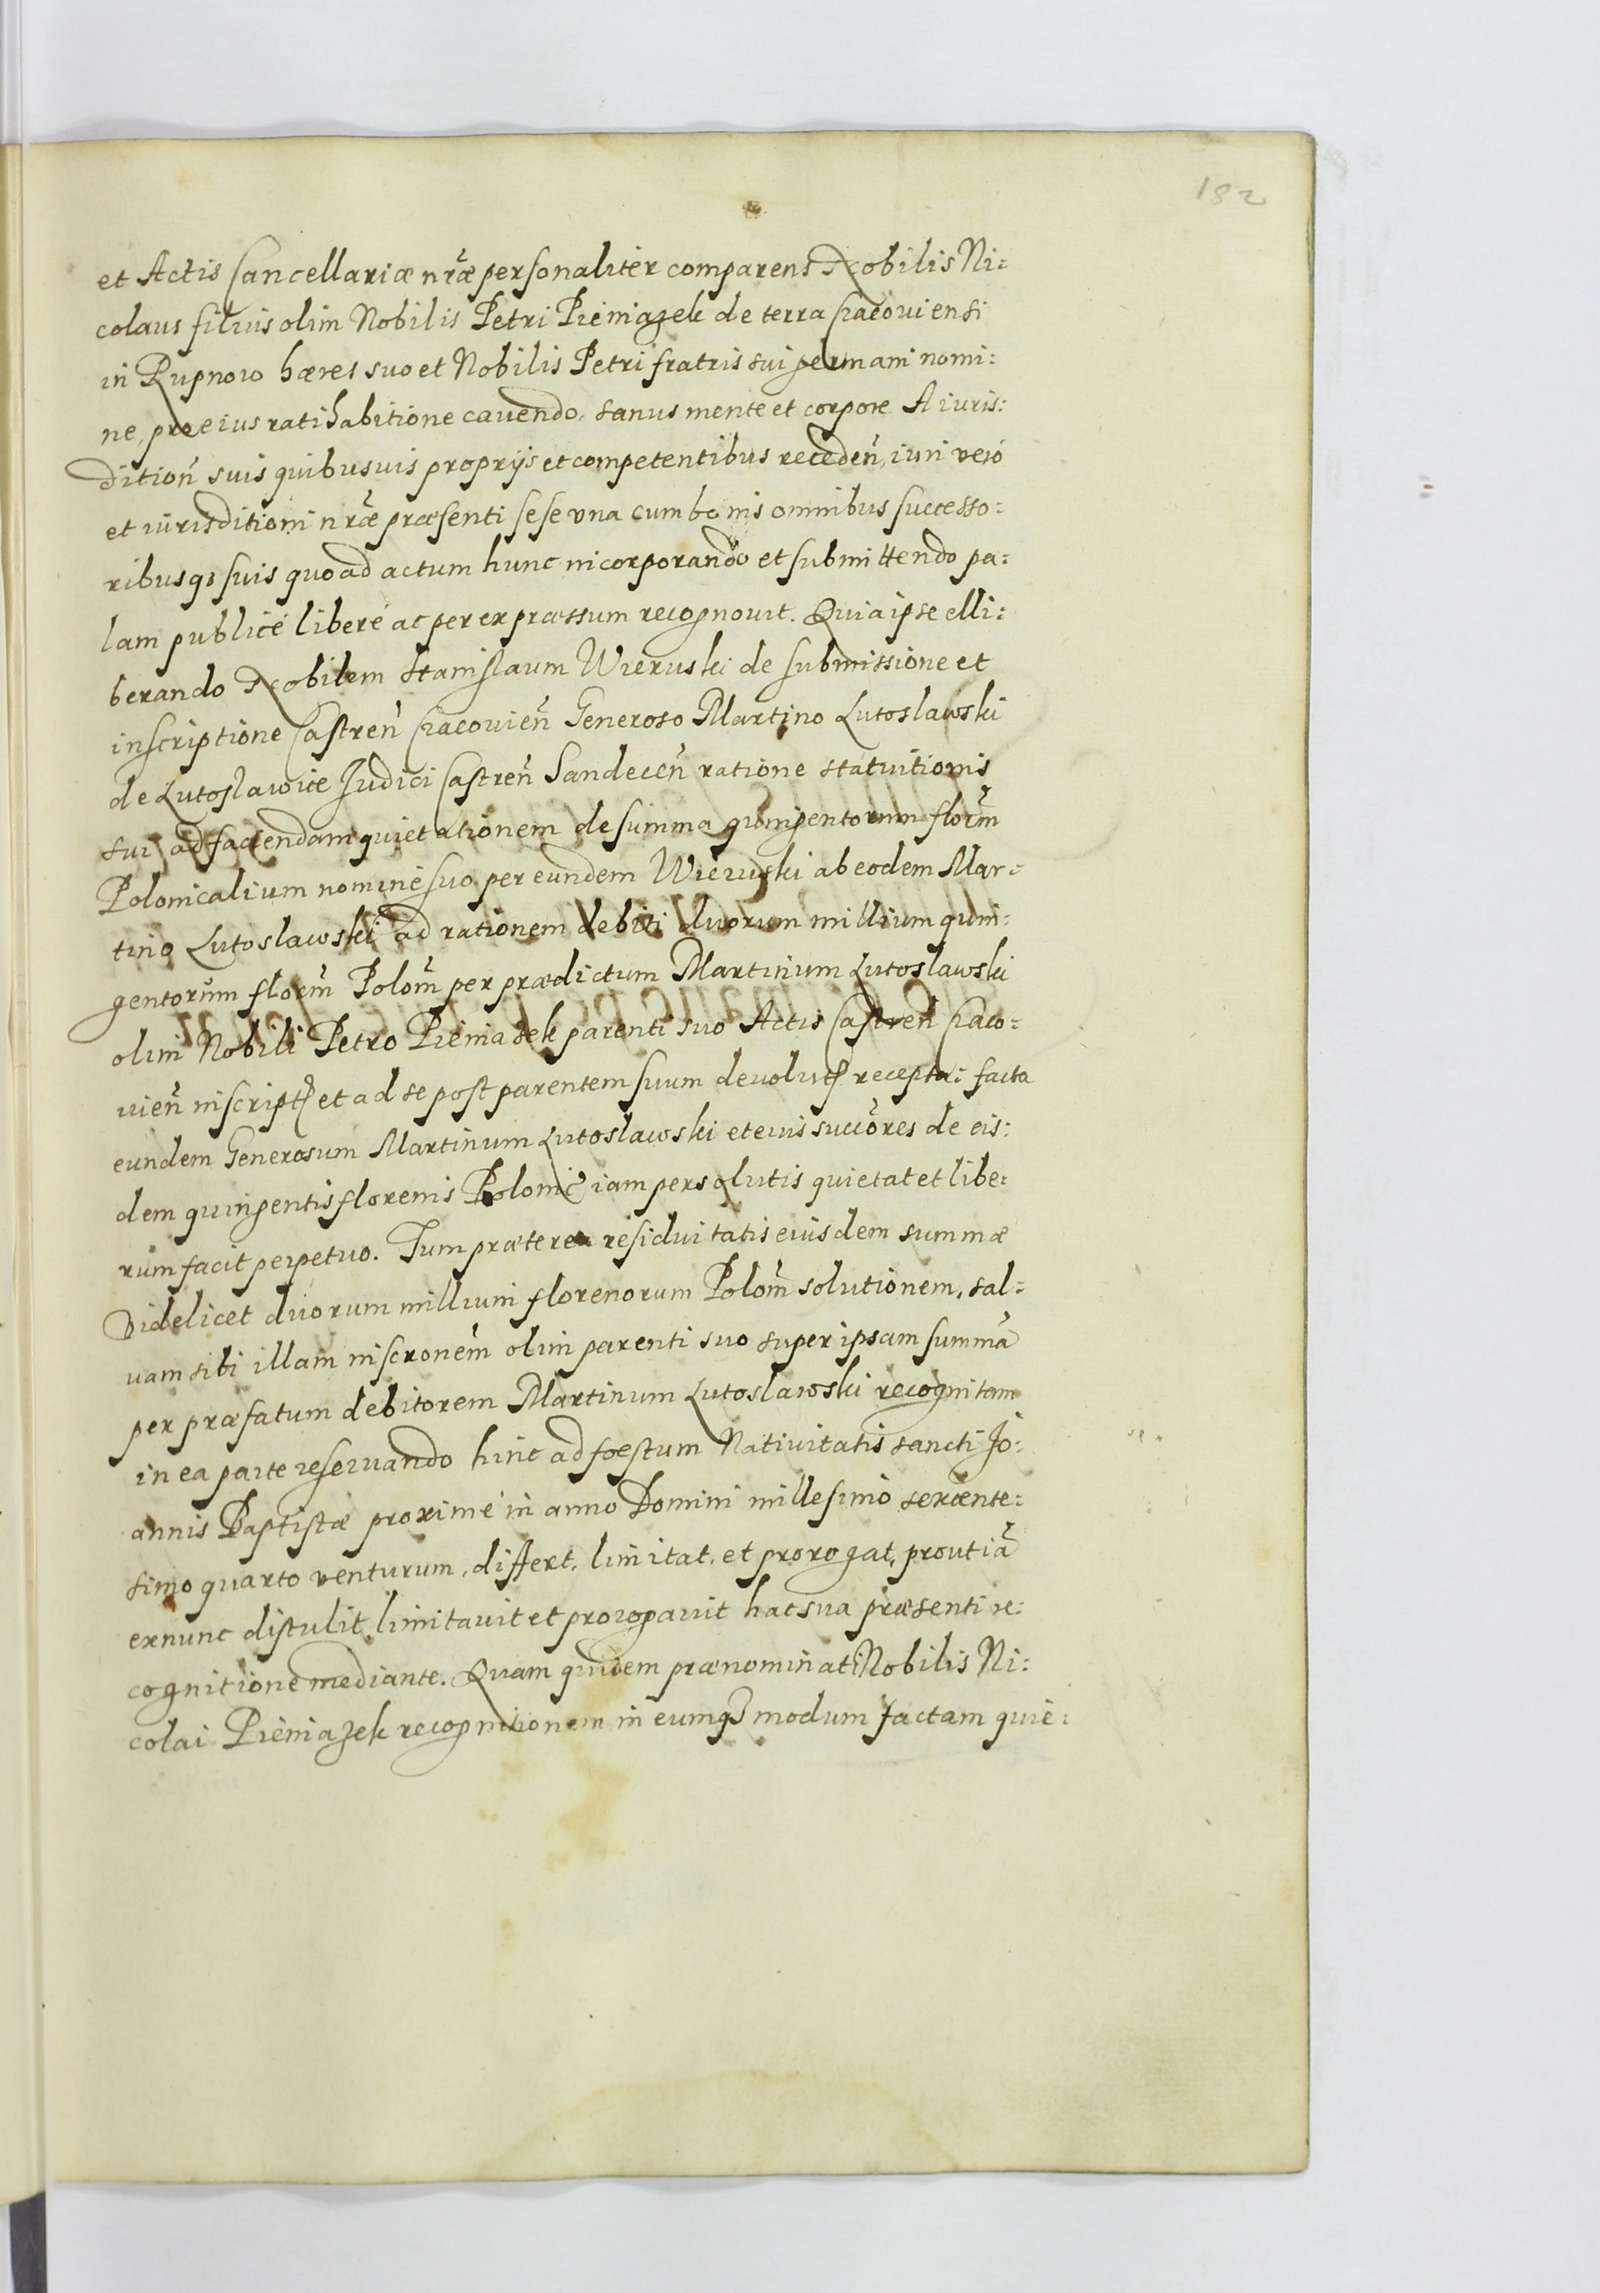 182
et Actis Cancellariæ nr̃æ personaliter comparens Nobilis Ni:
colaus filius olim Nobilis Petri Pieniązek de terra Cracouiensi
in Rupnow hæres suo et Nobilis Petri fratris sui germani nomi:
ne, pro eius ratihabitione cauendo, sanus mente et corpore A iuris:
dition̄ suis quibusuis proprijs et competentibus receden̄, iuri vero
et iurisditioni nr̃æ præsenti sese vna cum bonis omnibus successo:
ribusq3 suis quoad actum hunc incorporando et submittendo pa:
lam publicé liberé ac per expræssum recognouit. Quia ipse elli:
berando Nobilem Stanislaum Wieruski de submissione et
inscriptione Castren̄ Cracouien̄ Generoso Martino Lutoslawski
de Lutoslawice Judici Castren̄ Sandecen̄ ratione statuitionis
sui ad faciendam quietationem de summa quingentorum flor̄m
Polonicalium nomine suo per eundem Wieruski ab eodem Mar:
tino Lutoslawski ad rationem debiti duorum millium quin:
gentorum flor̄m Polon̄ per prædictum Martinum Lutoslawski
olim Nobili Petro Pieniazek parenti suo Actis Castren̄ Craco:
uien̄ inscript̄ et ad se post parentem suum deuolut̄ recepta: facta
eundem Generosum Martinum Lutoslawski et eius succ̄ores de eis:
dem quingentis florenis Polonic̄ iam persolutis quietat et libe:
rum facit perpetuo. Tum præterea residuitatis eiusdem summæ
videlicet duorum millium florenorum Polon̄ solutionem, sal:
uam sibi illam inscronem̄ olim parenti suo super ipsam summā
per præfatum debitorem Martinum Lutoslawski recognitam
in ea parte reseruando hinc ad foestum Natiuitatis sancti Jo:
annis Baptistæ proximé in anno Domini millesimo sexcente:
simo quarto venturum, differt, limitat, et prorogat, prout iā
exnunc distulit limitauit et prorogauit hac sua præsenti re:
cognitione mediante. Quam quidem prænominati Nobilis Ni:
colai Pieniązek recognitionem in eumq3 modum factam quie: